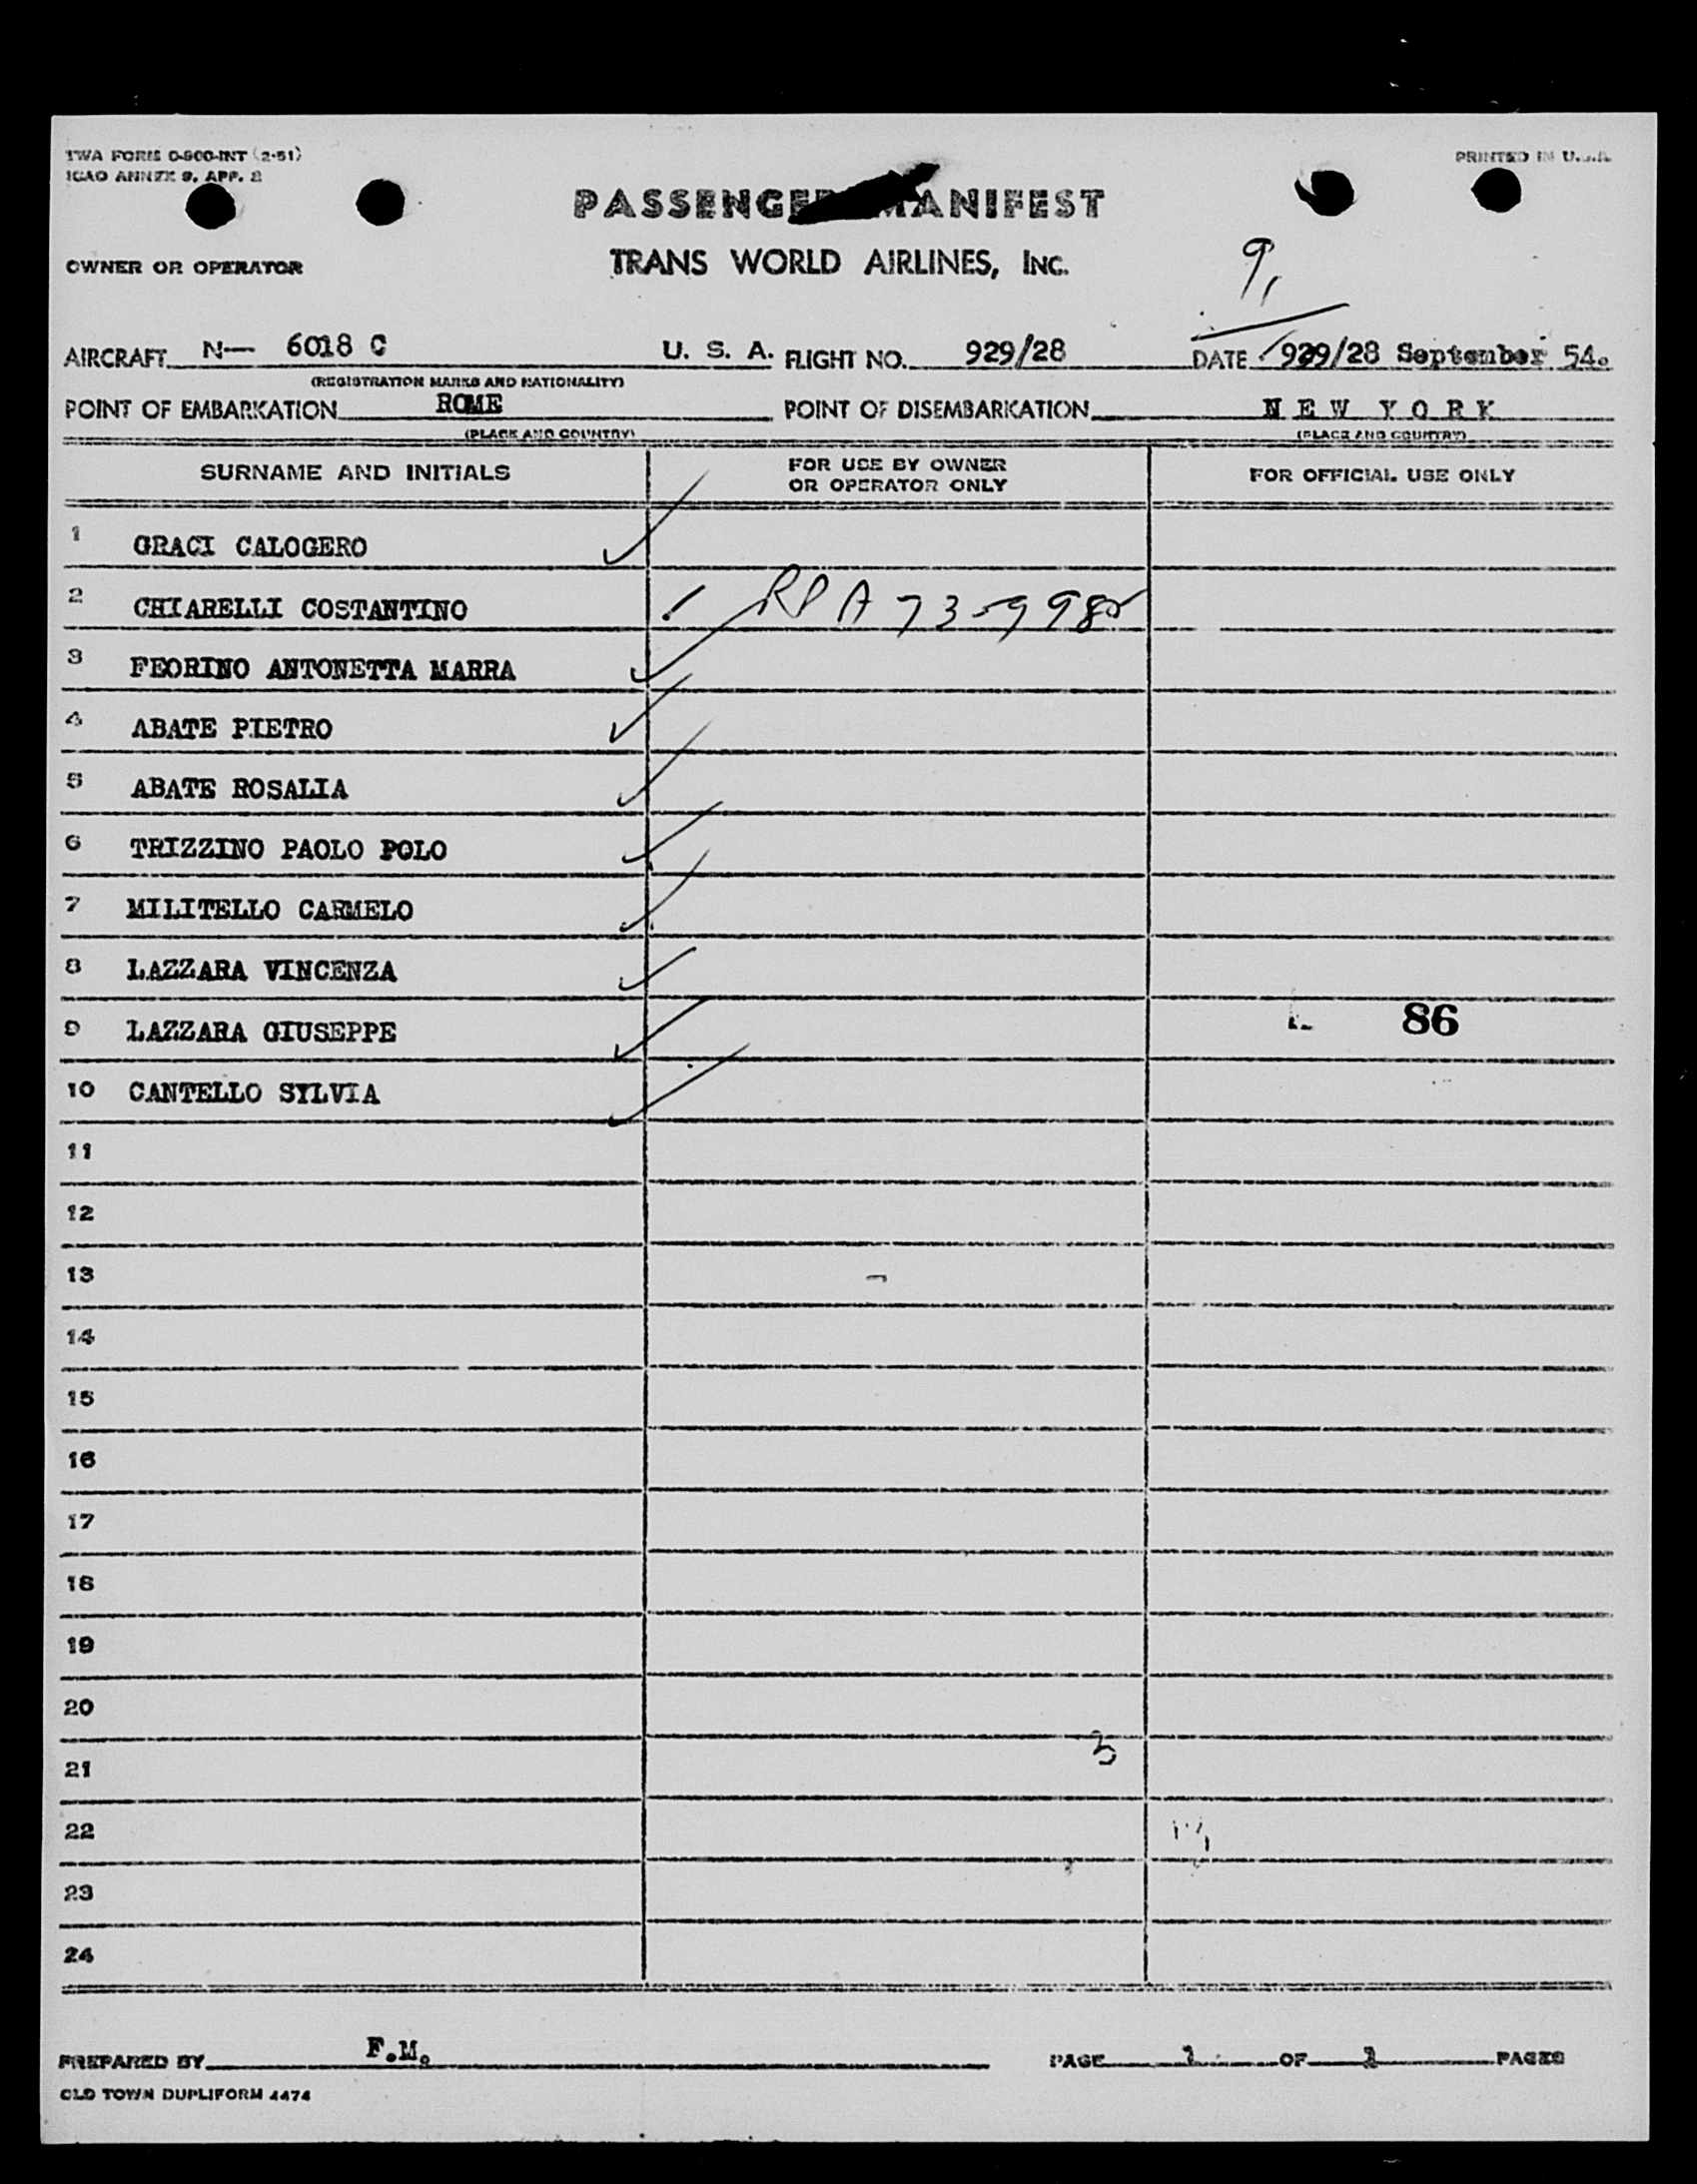 TWA FORM O-900-INT (2-51)
PRINTED IN U.S.A.
ICAO ANNEX 9, APP. 2
PASSENGER MANIFEST
OWNER OR OPERATOR
TRANS WORLD AIRLINES, INC.
9/
AIRCRAFT N— 6018 C U. S. A. FLIGHT NO. 929/28 DATE 929/28 September 54.
(REGISTRATION MARKS AND NATIONALITY)
POINT OF EMBARKATION ROME POINT OF DISEMBARKATION N E W Y O R K
(PLACE AND COUNTRY) (PLACE AND COUNTRY)
SURNAME AND INITIALS FOR USE BY OWNER OR OPERATOR ONLY FOR OFFICIAL USE ONLY
1 GRACI CALOGERO
2 CHIARELLI COSTANTINO RP A 73-998
3 FEORINO ANTONETTA MARRA
4 ABATE PIETRO
5 ABATE ROSALIA
6 TRIZZINO PAOLO POLO
7 MILITELLO CARMELO
8 LAZZARA VINCENZA
9 LAZZARA GIUSEPPE 86
10 CANTELLO SYLVIA
11
12
13
14
15
16
17
18
19
20
21 3
22
23
24
PREPARED BY F.M. PAGE OF PAGES
OLD TOWN DUPLIFORM 4474